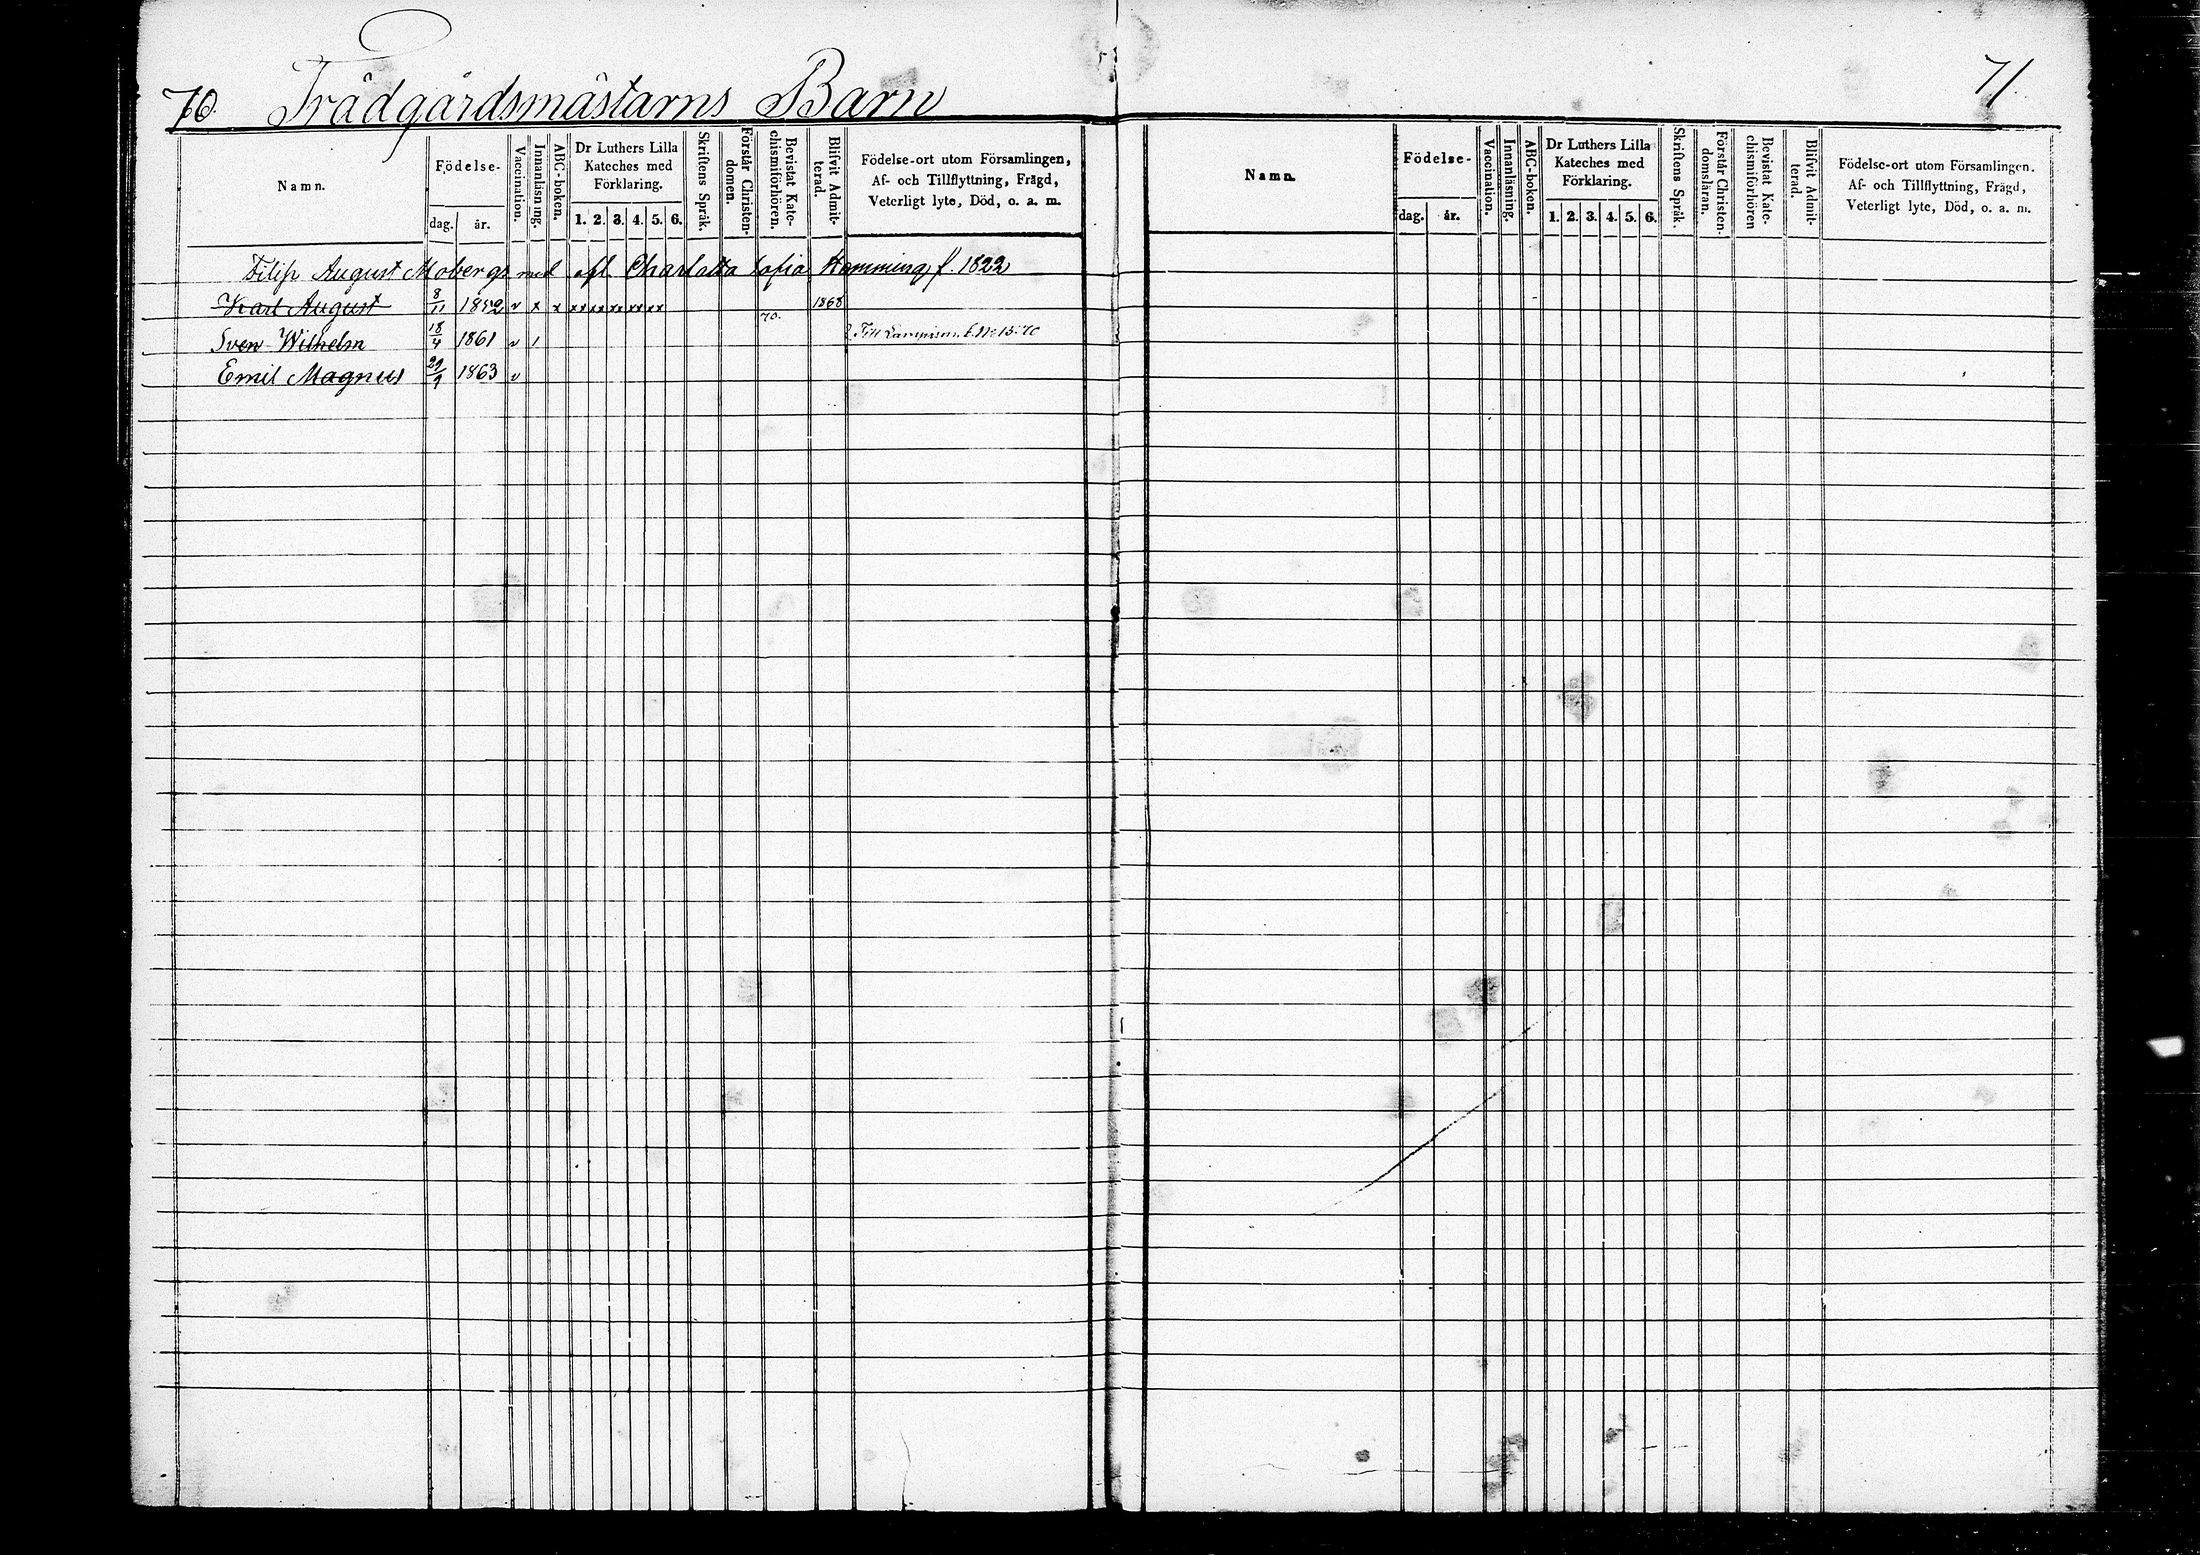 70. Trädgårdsmästarns Barn
Namn.
Födelse-
dag. år.
Vaccination.
Innanläsning.
ABC-boken.
Dr Luthers Lilla
Kateches med
Förklaring.
1. 2. 3. 4. 5. 6.
Skriftens Språk.
Förstår Christen-
domen.
Bevistat Kate-
chismiförhören.
Blifvit Admit-
terad.
Födelse-ort utom Församlingen,
Af- och Tillflyttning, Frägd,
Veterligt lyte, Död, o. a. m.
Filip August Mobergs med afl Charlotta Sofia Hemming f. 1822
Karl August 8/11 1852 v x x xx xx xx xx xx 1868
70.
Sven Wilhelm 18/4 1861 v 1 Till
Emil Magnus 29/9 1863 v
71
Namn.
Födelse-
dag. år.
Vaccination.
Innanläsning.
ABC-boken.
Dr Luthers Lilla
Kateches med
Förklaring.
1. 2. 3. 4. 5. 6.
Skriftens Språk.
Förstår Christen-
domsläran.
Bevistat Kate-
chismiförhören
Blifvit Admit-
terad.
Födelse-ort utom Församlingen.
Af- och Tillflyttning, Frägd,
Veterligt lyte, Död, o. a. m.